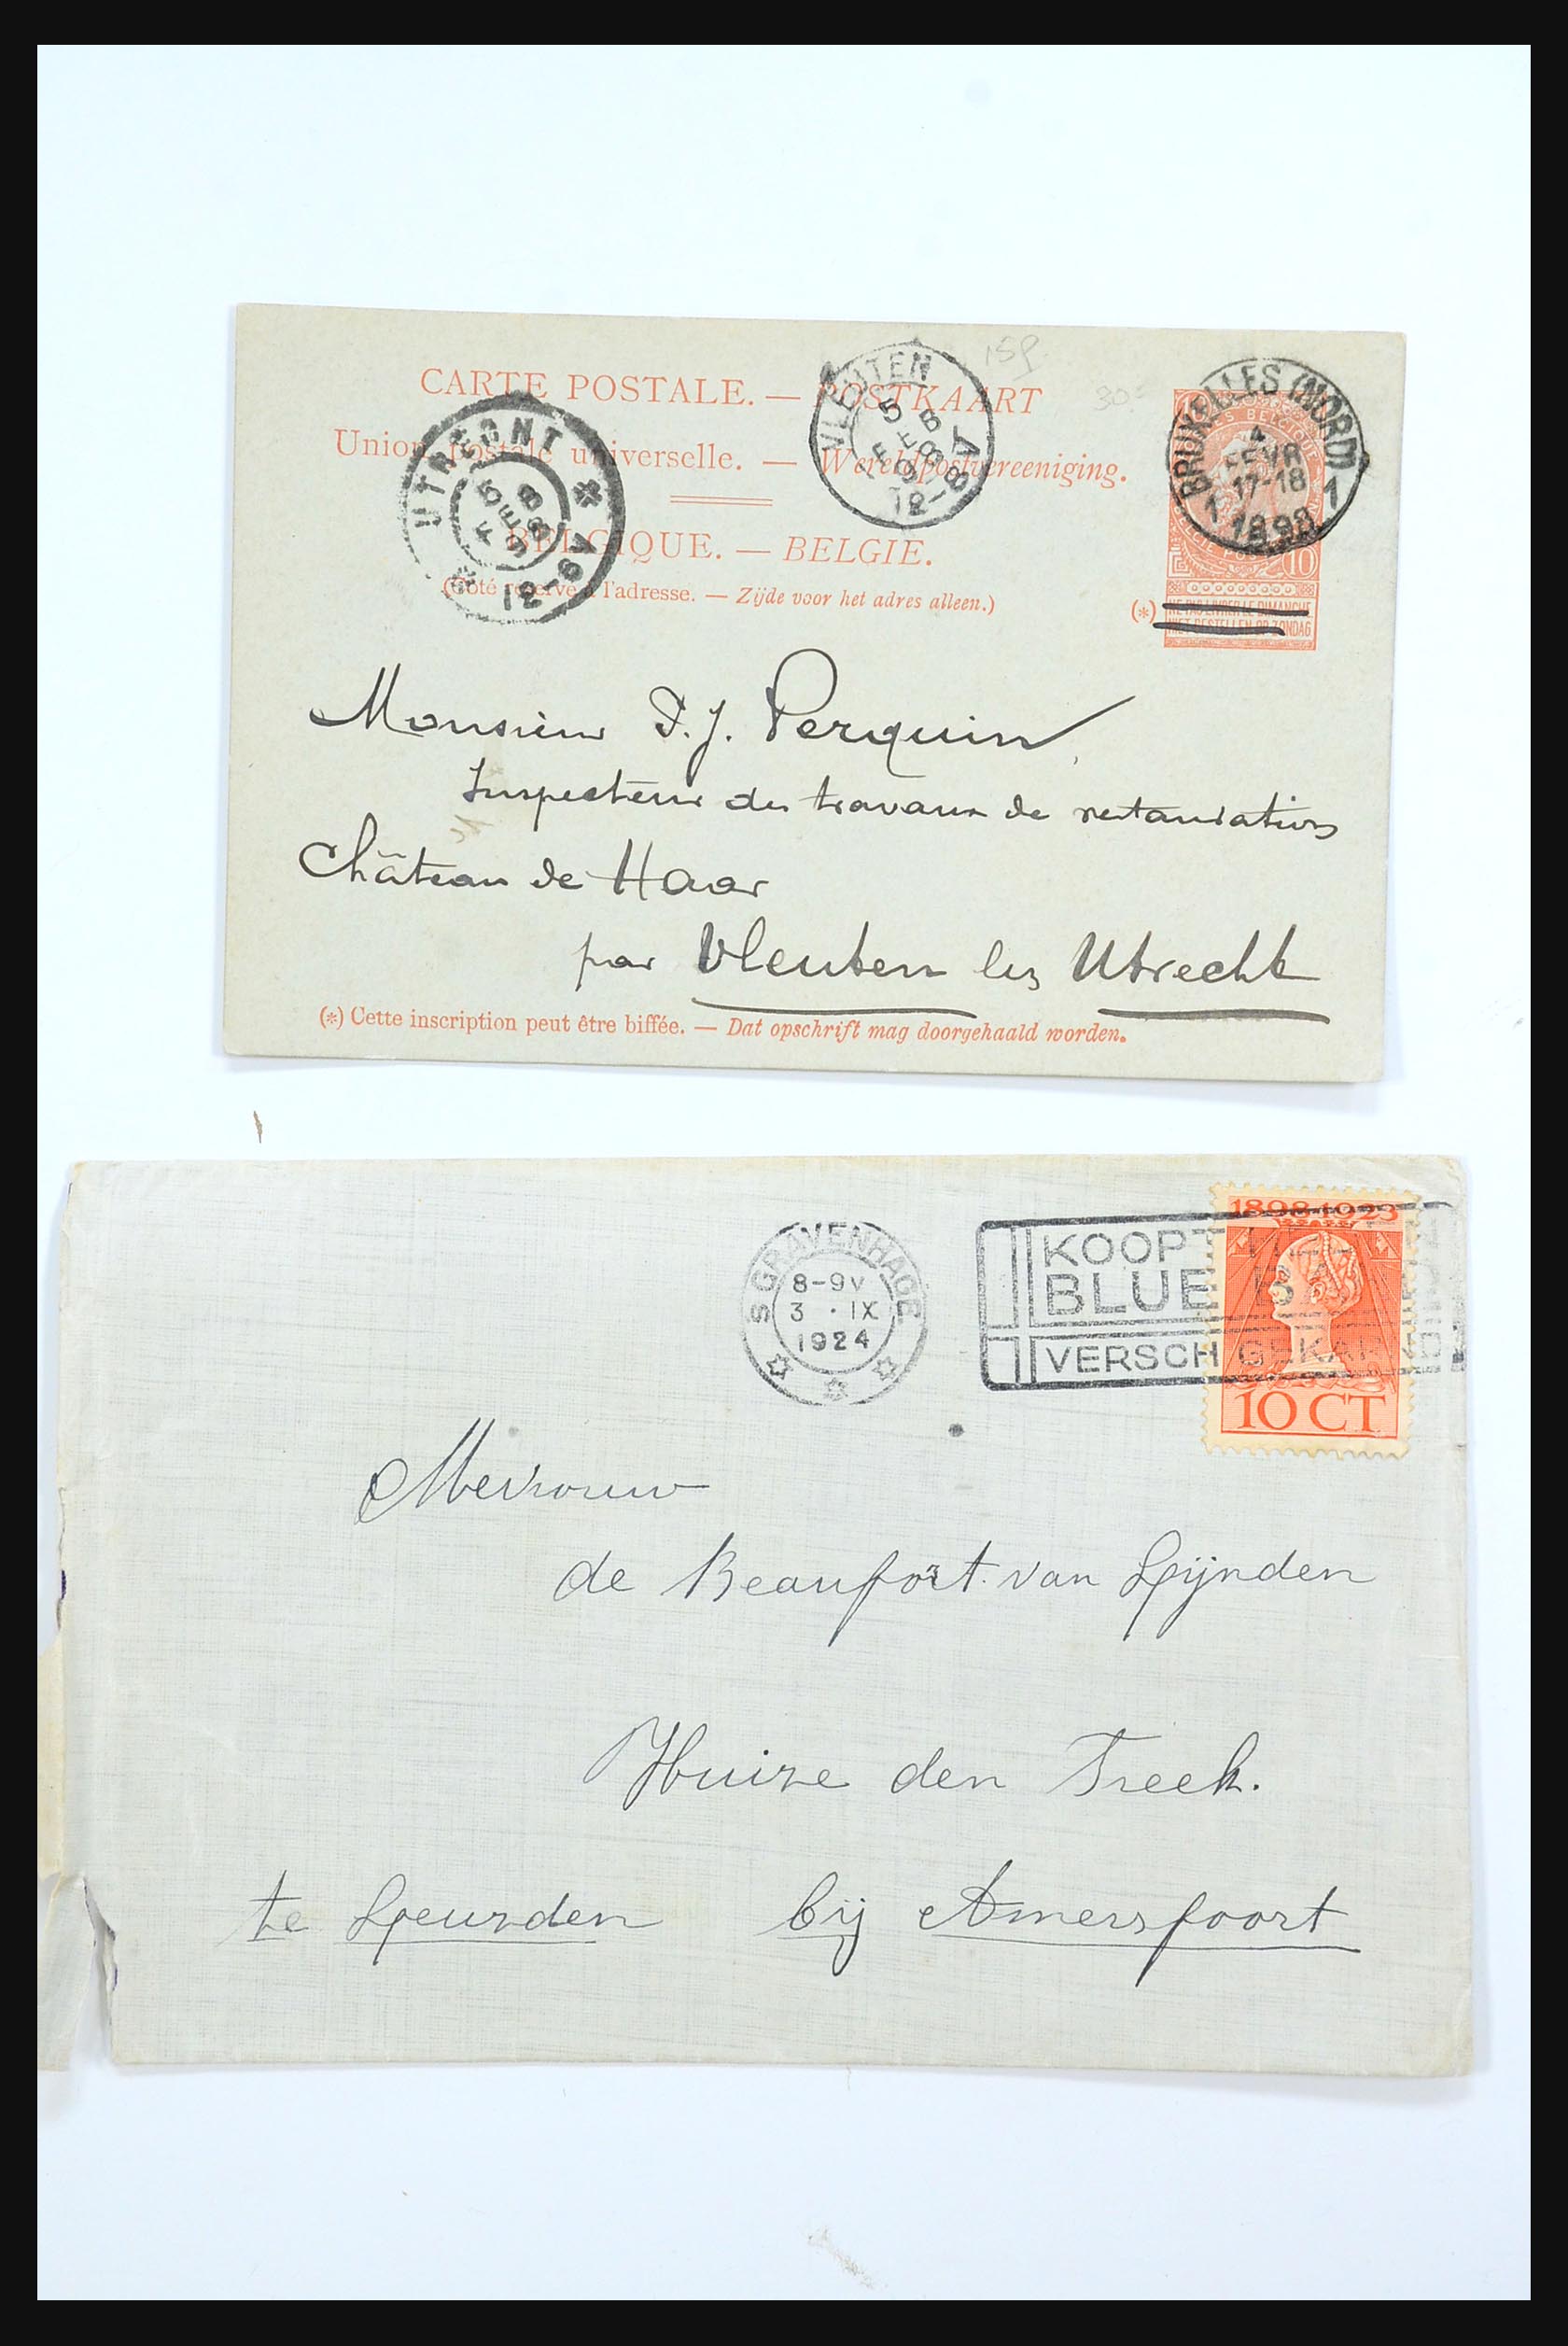 CARTE POSTALE. — POSTKAART
Union postale universelle. — Wereldpostvereeniging.
BELGIQUE. — BELGIE.
(Côté réservé à l'adresse. — Zijde voor het adres alleen.)
15f
30
UTRECHT
5 FEB 98
12-8V
VLEUTEN
5 FEB 98
12-8V
BRUXELLES (NORD)
4
FÉVR
17-18
1898
1 1
10
(*) NE PAS LIVRER LE DIMANCHE
NIET BESTELLEN OP ZONDAG
Monsieur P. J. Perquin
Inspecteur des travaux de restauration
Château de Haar
par Vleuten lez Utrecht
(*) Cette inscription peut être biffée. — Dat opschrift mag doorgehaald worden.
S GRAVENHAGE
8-9V
3 · IX
1924
KOOPT
BLUE BAND
VERSCH GEKARND
1898-1923
10 CT
Mevrouw
de Beaufort van Lijnden
Huize den Treek.
te Leusden bij Amersfoort